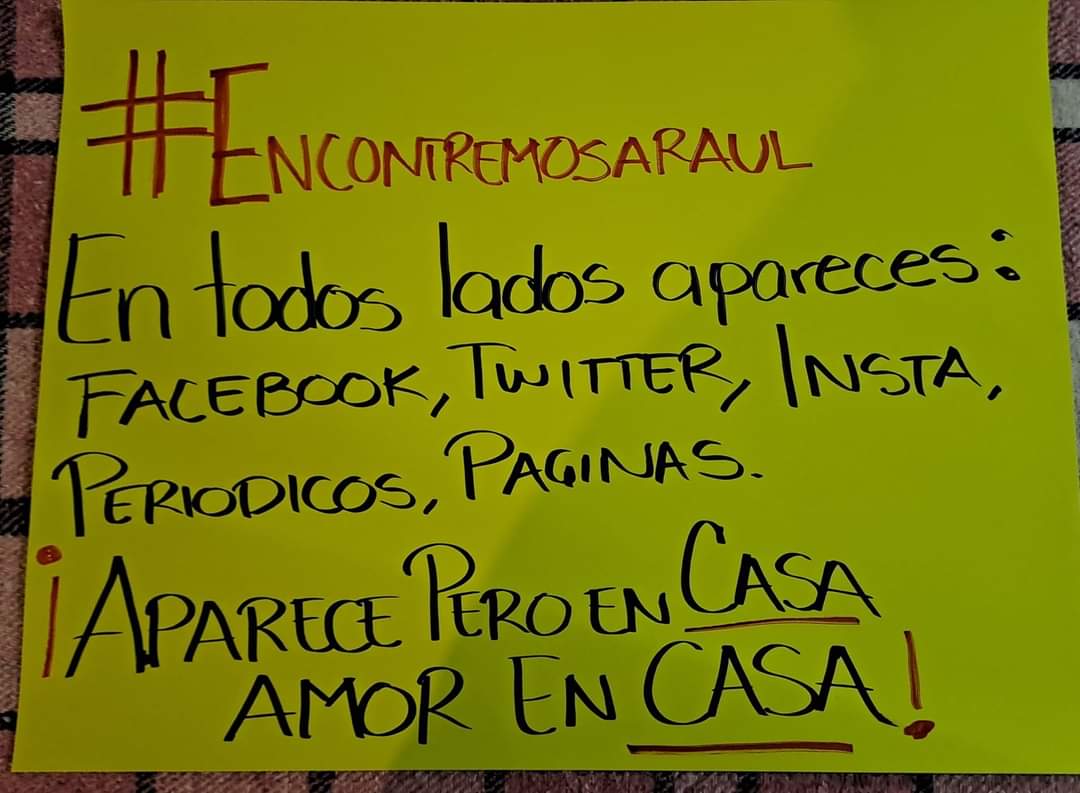 #ENCONTREMOSARAUL
En todos lados apareces:
FACEBOOK, TWITTER, INSTA,
PERIODICOS, PAGINAS.
¡APARECE PERO EN CASA
AMOR EN CASA!